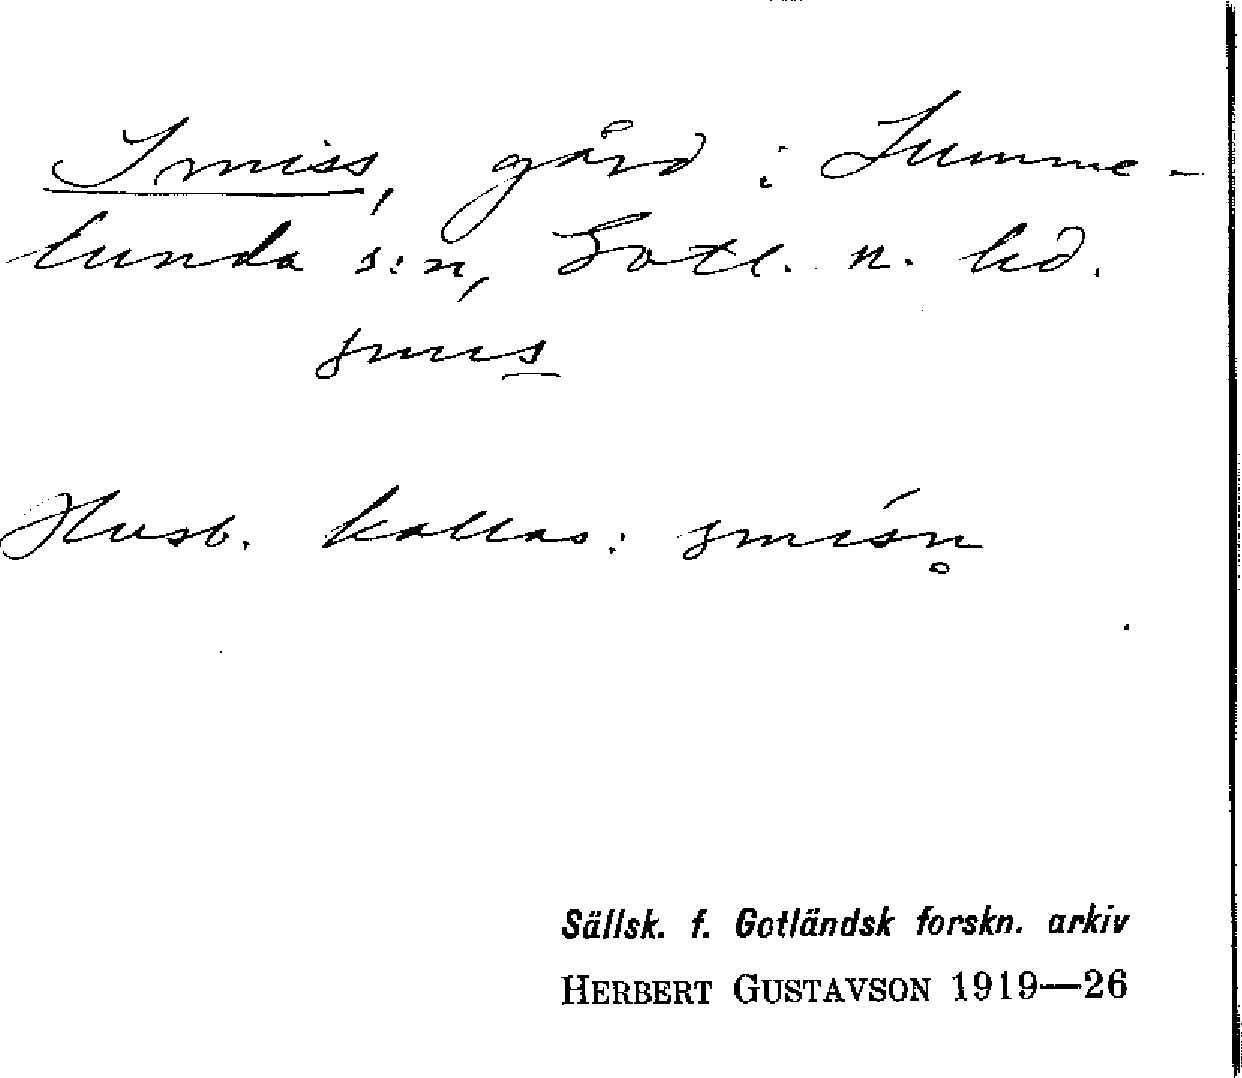 Smiss, gård i Lumme-
lunda s:n, Gotl. n. hd.
smis
Husb. kallas: smisn̥
Sällsk. f. Gotländsk forskn. arkiv
HERBERT GUSTAVSON 1919—26